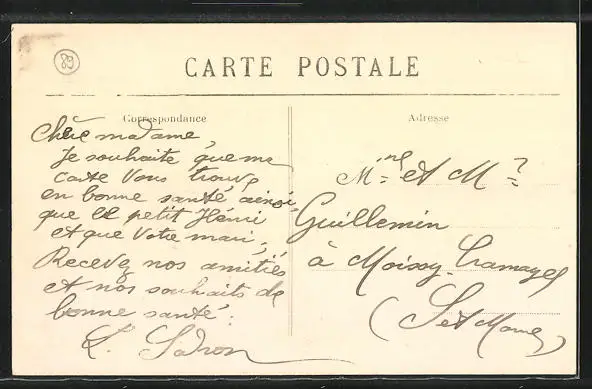 89
CARTE POSTALE
Correspondance
Adresse
Chère madame,
Je souhaite que ma
carte vous trouve
en bonne santé ainsi
que le petit Henri
et que votre mari,
Recevez nos amitiés
et nos souhaits de
bonne santé.
L. Sadron
Mme et Mr
Guillemin
à Moissy-Cramayel
(Set Marne)